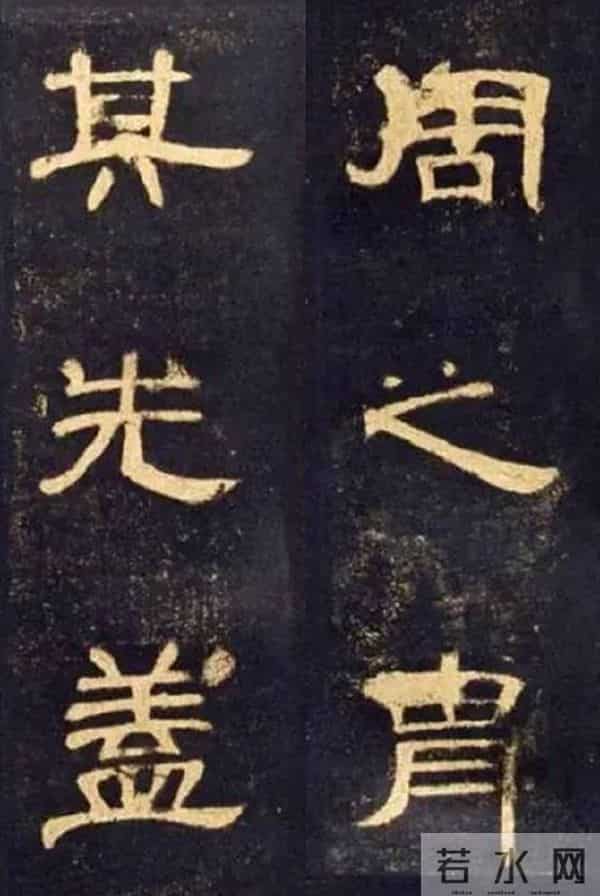 其先盖
周之胄
若水网